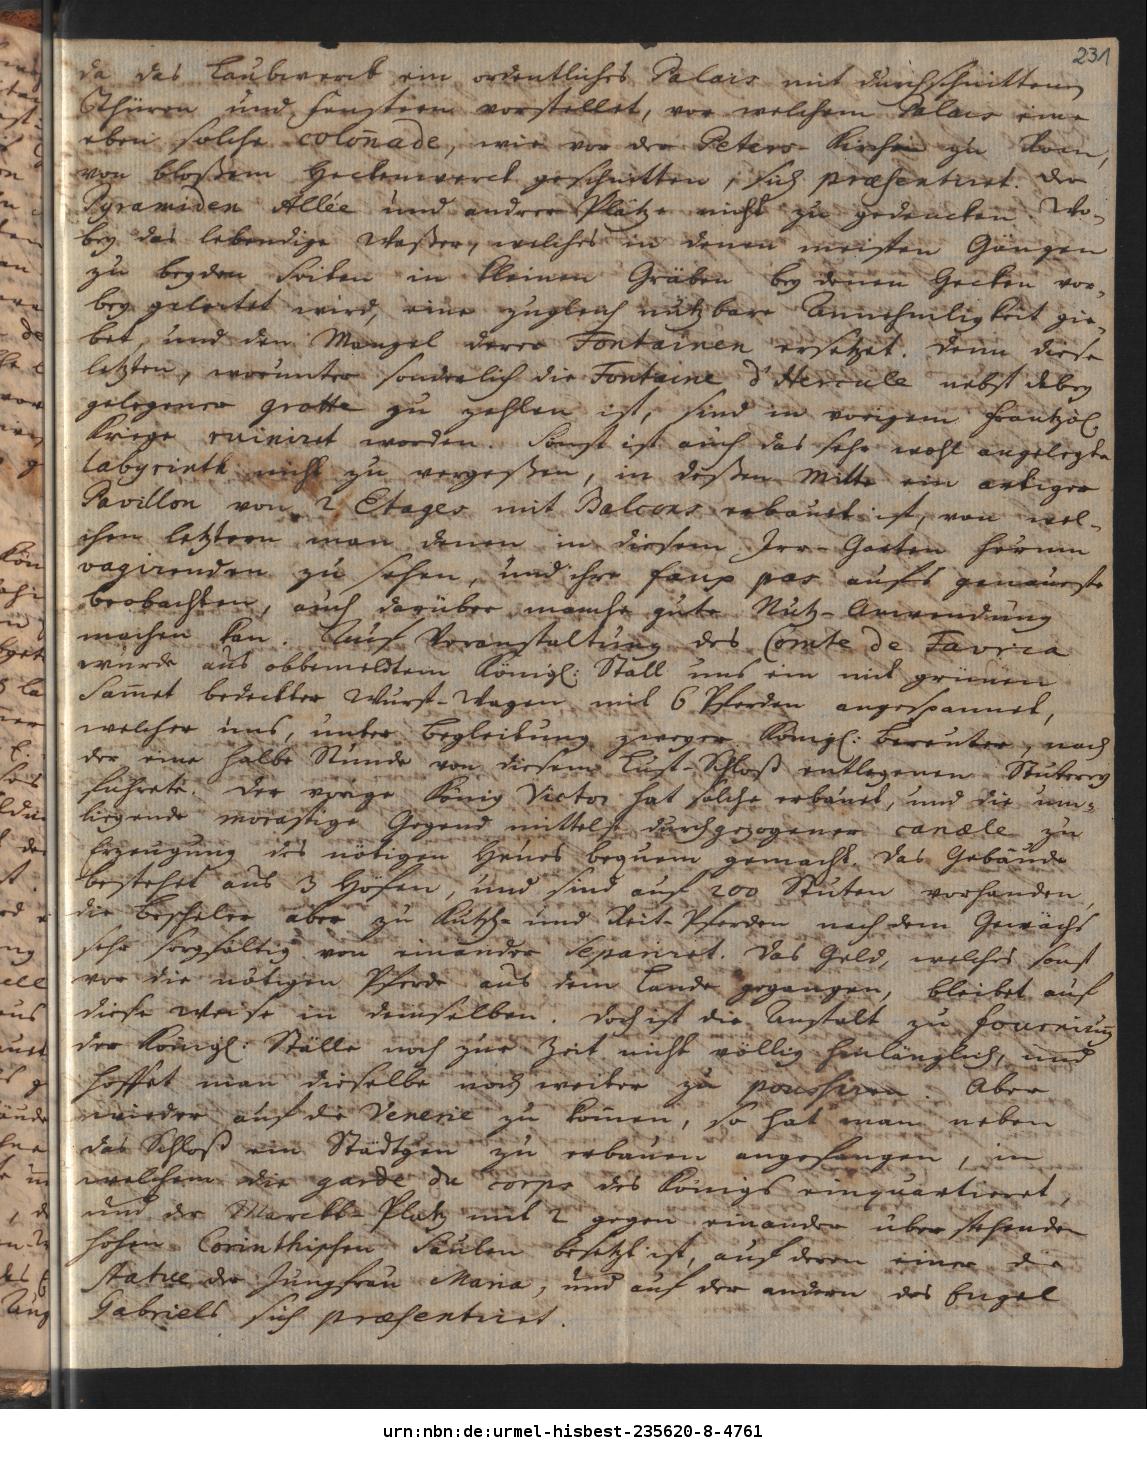 231
da das Laubwerck ein ordentliches Palais mit durchschnittenen
Thüren und Fenstern vorstellet, vor welchem Palais eine
eben solche colonade, wie vor der Peters-Kirchen zu Rom,
von bloßem Heckenwerck geschnitten, sich præsentiret. Der
Pyramiden Allée und andrer Plätze nicht zu gedencken. Wo-
bey das lebendige Waßer, welches in denen meisten Gängen
zu beyden Seiten in kleinen Gräben bey denen Hecken vor-
bey geleitet wird, eine zugleich nutzbare Annehmligkeit gie-
bet, und den Mangel derer Fontainen ersetzet. Denn diese
letzten, worunter sonderlich die Fontaine d'Hercule nebst dabey
gelegener grotte zu zehlen ist, sind in vorigem Frantzös.
Kriege ruiniret worden. Sonst ist auch das sehr wohl angelegte
Labyrinth nicht zu vergeßen, in deßen Mitte ein artiger
Pavillon von 2 Etages mit Balcons erbauet ist, von wel-
chen letztern man denen in diesem Irr-Garten herum
vagirenden zu sehen, und ihre faux pas aufs genaueste
beobachten, auch darüber manche gute Nutz-Anwendung
machen kan. Auf Veranstaltung des Comte de Favria
wurde aus obbemeldtem Königl: Stall uns ein mit grünen
Sammet bedeckter Wurst-Wagen mit 6 Pferden angespannet,
welcher uns, unter Begleitung zweyer Königl: Bereuter, nach
der eine halbe Stunde von diesem Lust-Schloß entlegenen Stuterey
führete. Der vorige König Victor hat solche erbauet, und die um-
liegende morastige Gegend mittelst durchgezogener canæle zu
Erzeugung des nötigen Heues bequem gemacht. Das Gebäude
bestehet aus 3 Höfen, und sind auf 200 Stuten vorhanden,
die Bescheler aber zu Kutsch- und Reit-Pferden nach dem Gewächs
sehr sorgfältig von einander separiret. Das Geld, welches sonst
vor die nötigen Pferde aus dem Lande gegangen, bleibet auf
diese Weise in demselben. Doch ist die Anstalt zu fournirung
der Königl: Ställe noch zur Zeit nicht völlig hinlänglich, und
hoffet man dieselbe noch weiter zu poussiren. Aber
wieder auf die Venerie zu kommen, so hat man neben
das Schloß ein Städtgen zu erbauen angefangen, in
welchem die garde du corps des Königs einquartieret,
und der Marckt-Platz mit 2 gegen einander über stehenden
hohen Corinthischen Säulen besetzt ist, auf deren einer die
statue der Jungfrau Maria, und auf der andern des Engel
Gabriels sich præsentiret.
urn:nbn:de:urmel-hisbest-235620-8-4761